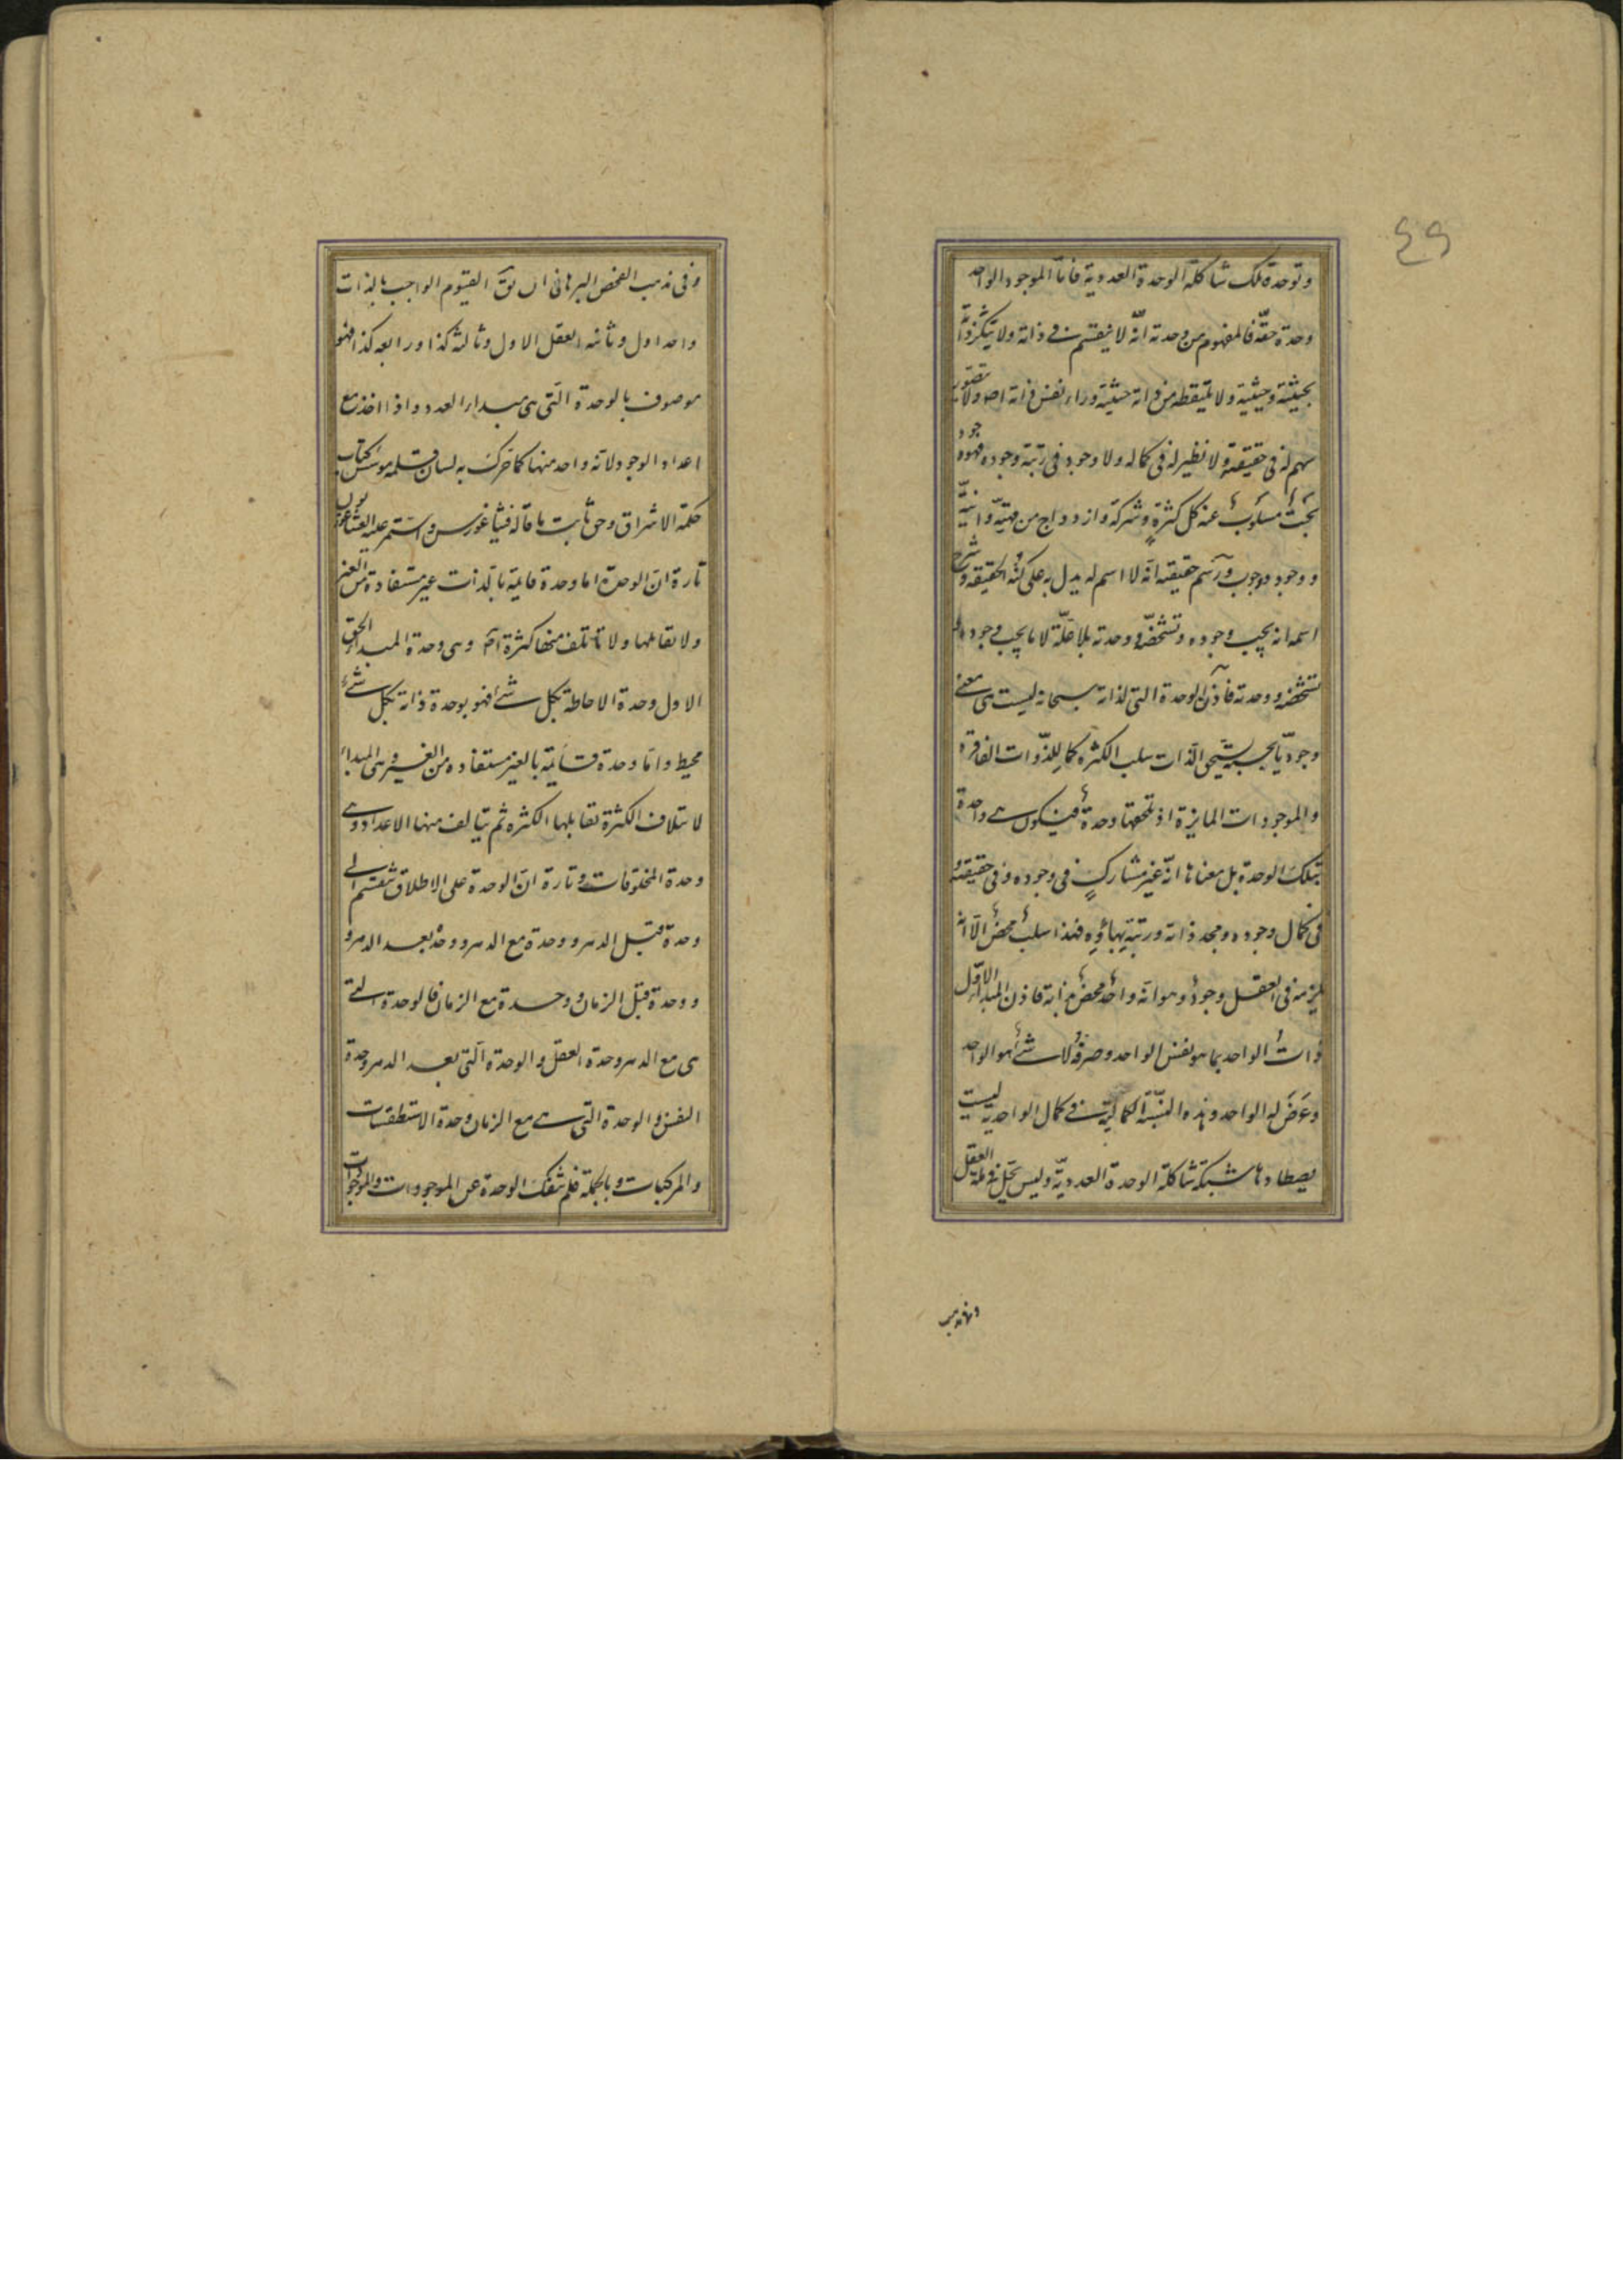 ٤٩
وتوحده تلك شاكلة الوحدة العددية فاما الموجود الواحد
وحدة حقّة فالمفهوم من وحدته انّه لا ينقسم في ذاته ولا يتكثر ذاته
بحيثية وحيثية ولا تلتقط من ذاته حيثية وراء نفس ذاته اصلا ولا يتصور
سهم له في حقيقته ولا نظير له في كماله ولا وجود في رتبة وجوده فهو وجود
بحت مسلوب عنه كل كثرة وشركة وازدواج من مهيّة وانيّة
ووجود ووجوب ورسم حقيقته انّه لا اسم له يدل به على كنه الحقيقة وشرح
اسمه انه يجب وجوده وتشخصه ووحدته بلا علّة لا ما يجب وجوده او
تشخصه ووحدته فاذن الوحدة التي لذاته سبحانه ليست هي معنى
وجوديّا يجب به تنحّى الذات سلب الكثرة كما للذّوات الفاقرة
والموجودات المايزة اذ تلحقها وحدة فيكون هي واحدة
بتلك الوحدة بل معناها انّه غير مشارك في وجوده وفي حقيقته و
في كمال وجوده ومجد ذاته ورتبة بهائه فهذا سلب محض الا انه
يلزمه في العقل وجود وهو انه واحد محض بذاته فاذن المبدأ الاوّل
ذات الواحد بما هو نفس الواحد وصرفه لا شئ هو الواحد
وعرض له الواحد وهذه النسبة الكمالية في كمال الواحدية ليست
يصطادها شبكة شاكلة الوحدة العددية وليس يحل في ذمة العقل
وفي مذهب
وفي مذهب الفحص البرهاني ان يق القيوم الواجب بالذات
واحد اول وثانيه العقل الاول وثالثه كذا ورابعه كذا فهو
موصوف بالوحدة التي هي مبدأ العدد واذا اخذ مع
اعداد الوجود لانه واحد منها كما تحركت به لسان قلمه مؤسس كتاب
حكمة الاشراق وحق ثابت ما قاله فيثاغورس واستمر عليه الفيثاغوريون
تارة ان الوحدة اما وحدة قايمة بالذات غير مستفادة من الغير
ولا يقابلها ولا تاتلف منها كثرة اصلا وهي وحدة المبدأ الحق
الاول وحدة الاحاطة بكل شئ فهو بوحدة ذاته بكل شئ
محيط واما وحدة قائمة بالغير مستفاده من الغير وهي المبدأ
لائتلاف الكثرة تقابلها الكثرة ثم يتالف منها الاعداد وهي
وحدة المخلوقات وتارة ان الوحدة على الاطلاق تنقسم الى
وحدة قبل الدهر ووحدة مع الدهر ووحدة بعد الدهر و
ووحدة قبل الزمان ووحدة مع الزمان فالوحدة التي
هي مع الدهر وحدة العقل والوحدة التي بعد الدهر وحدة
النفس والوحدة التي هي مع الزمان وحدة الاستطقسات
والمركبات وبالجملة فلم تنفك الوحدة عن الموجودات والموجودات